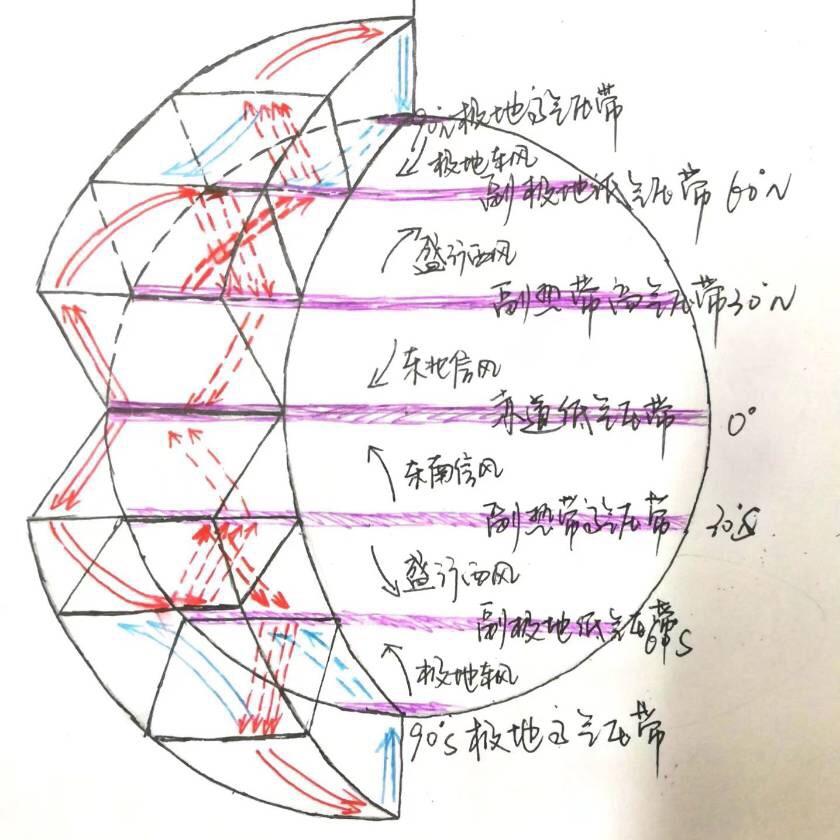 90°N极地高气压带
极地东风
副极地低气压带 60°N
盛行西风
副热带高气压带30°N
东北信风
赤道低气压带 0°
东南信风
副热带高气压带 30°S
盛行西风
副极地低气压带60°S
极地东风
90°S极地高气压带